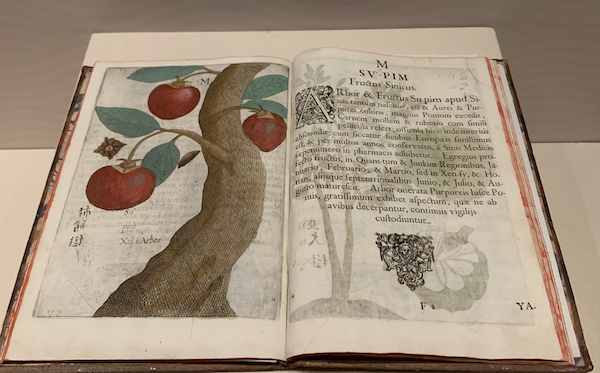 M
Su
柿餅樹
Xu Arbor
M
SV PIM
Fructus Sinicus.
ARbor & Fructus Su pim apud Si-
nas tantùm nascitur, est & Aurei & Pur-
purei coloris, magnus Pomum excedit,
Carnem mollem & rubeam cum simili
pellicula refert, ossicula hinc inde interius
abscondit; cum siccatur ficubus Europeis simillimus
est, & per multos annos conservatur, à Sinis Medicis
exponitur in pharmacis adhibetur. Egregius pro-
fectò fructus, in Quam-tum & Junkim Regionibus, Ja-
nuario, Februario, & Martio, sed in Xen-sy, & Ho-
nam, aliisque septentrionalibus Junio, & Julio, & Au-
gusto maturescit. Arbor onerata Purpureis hisce Po-
mis, gratissimum exhibet aspectum, quæ ne ab
avibus decerpantur, continuis vigiliis
custodiuntur.
F 2
YA.